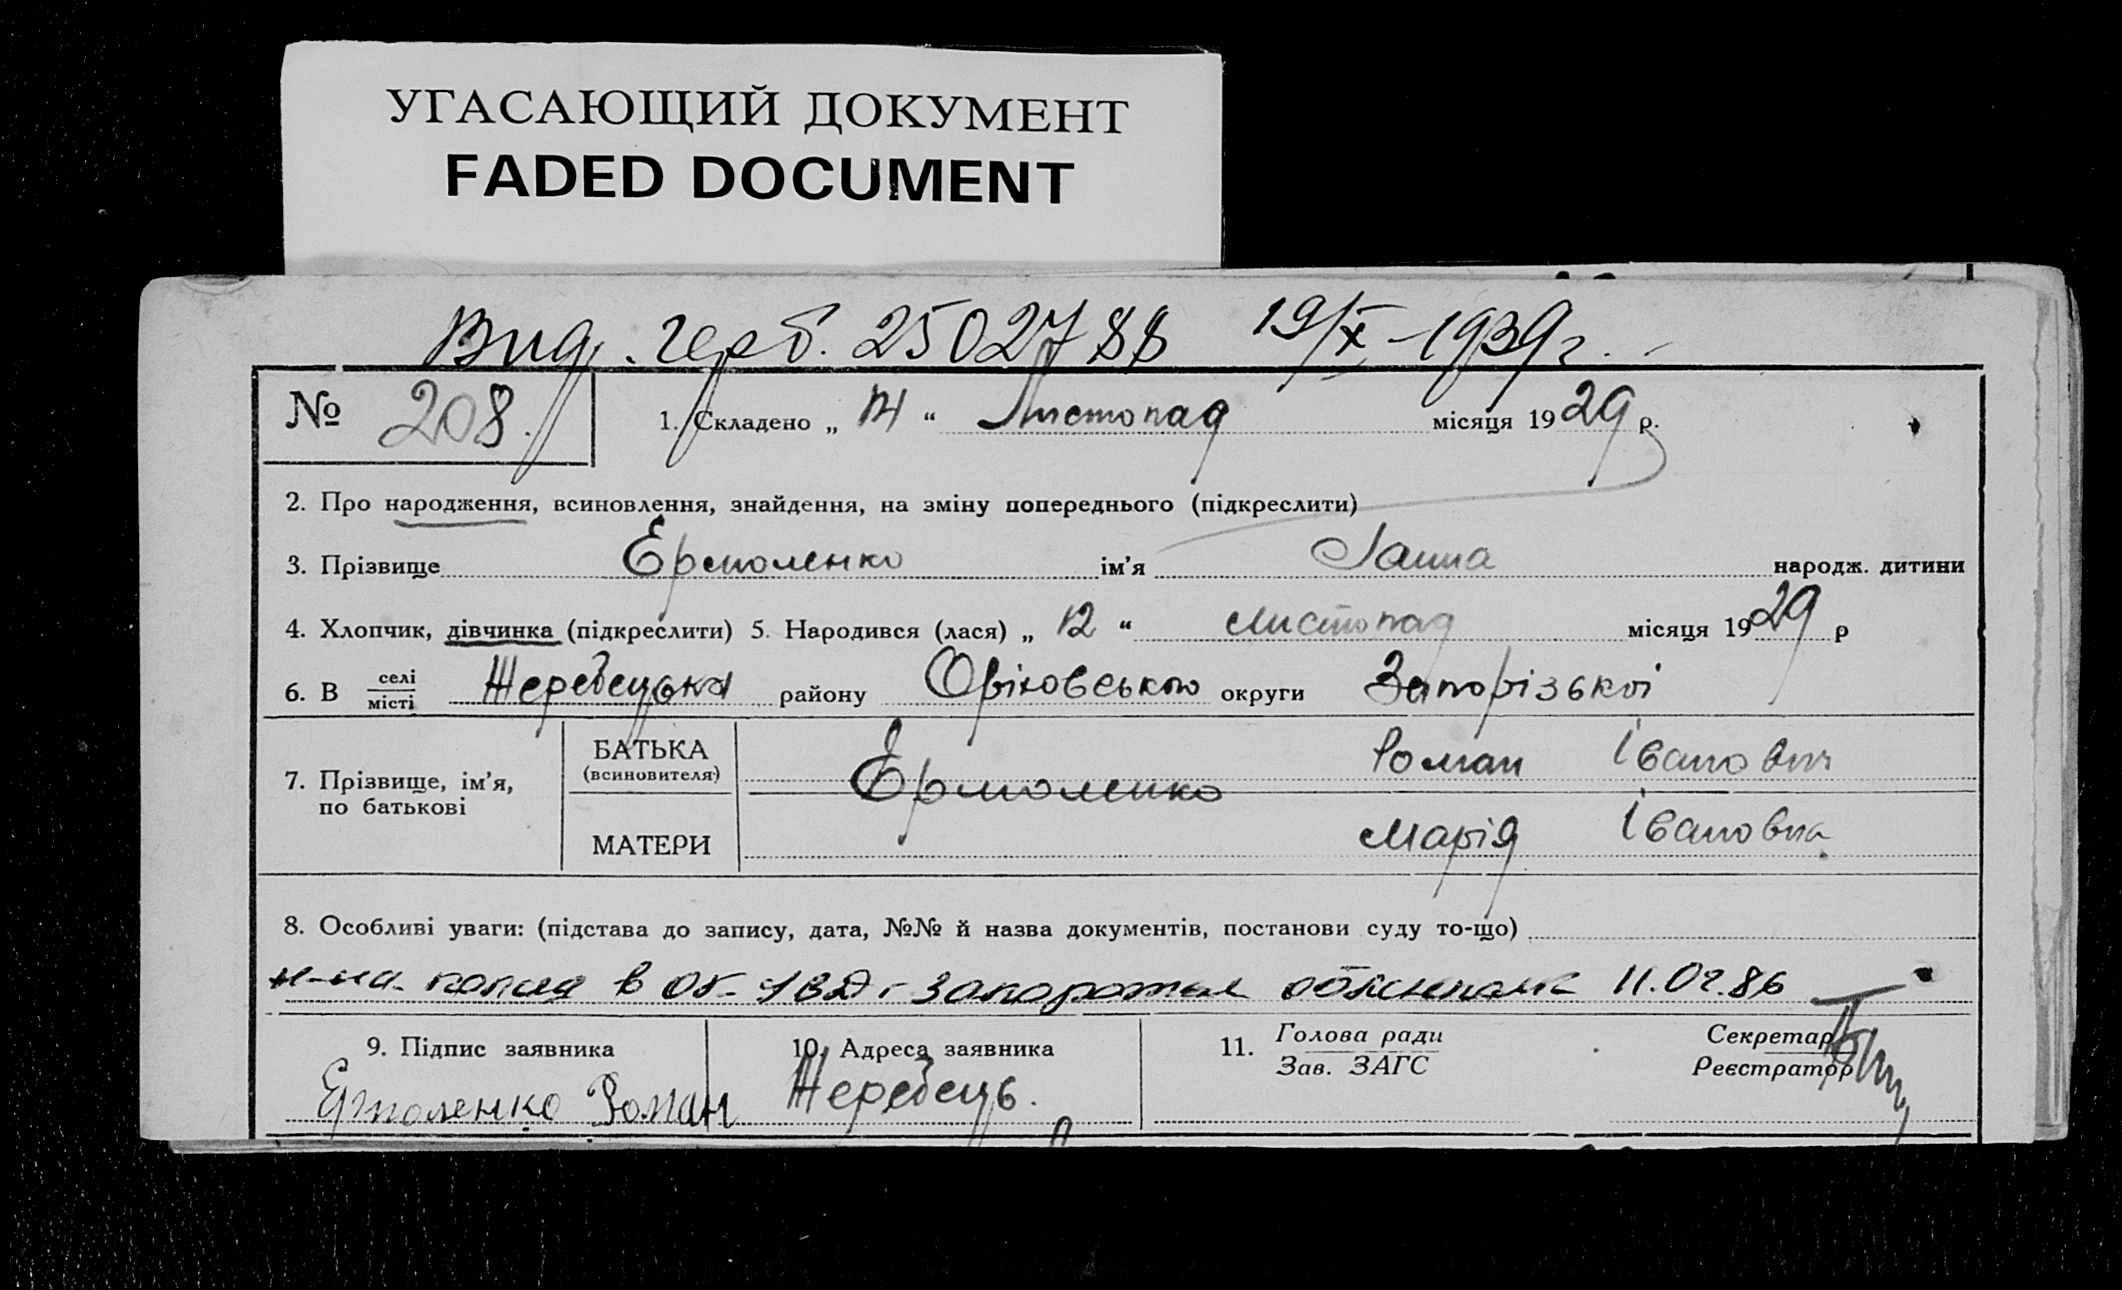 УГАСАЮЩИЙ ДОКУМЕНТ
FADED DOCUMENT
Вид. герб. 2502788 19/X-1939 г.
№ 208. 1. Складено „ 14 “ Листопад місяця 1929 р.
2. Про народження, всиновлення, знайдення, на зміну попереднього (підкреслити)
3. Прізвище Ермоленко ім’я Ганна народж. дитини
4. Хлопчик, дівчинка (підкреслити) 5. Народився (лася) „ 12 “ листопад місяця 1929 р
6. В селі місті Жеребецька району Оріховського округи Запорізькоі
7. Прізвище, ім’я, по батькові
БАТЬКА (всиновителя) Ермоленко Роман Іванович
МАТЕРИ Марія Івановна
8. Особливі уваги: (підстава до запису, дата, №№ й назва документів, постанови суду то-що)
копия в 11.02.86
9. Підпис заявника 10. Адреса заявника 11. Голова ради Зав. ЗАГС Секретар Реєстратор
Ермоленко Роман Жеребець.